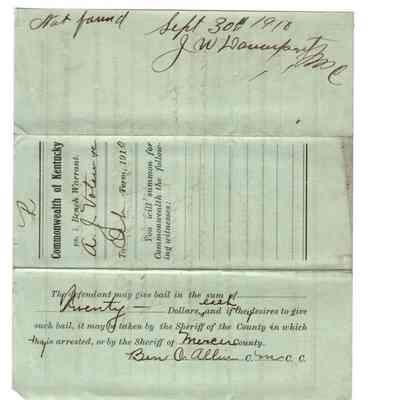 Not found
Sept 30th 1910
J W Davenport
Commonwealth of Kentucky
vs. Bench Warrant.
A. J.
To Term, 1910
You will summon for
Commonwealth the follow-
ing witnesses:
The defendant may give bail in the sum of
Twenty — Dollars, each and if they desires to give
such bail, it may be taken by the Sheriff of the County in which
they is arrested, or by the Sheriff of Mercer County.
Ben C. Allin c m c c